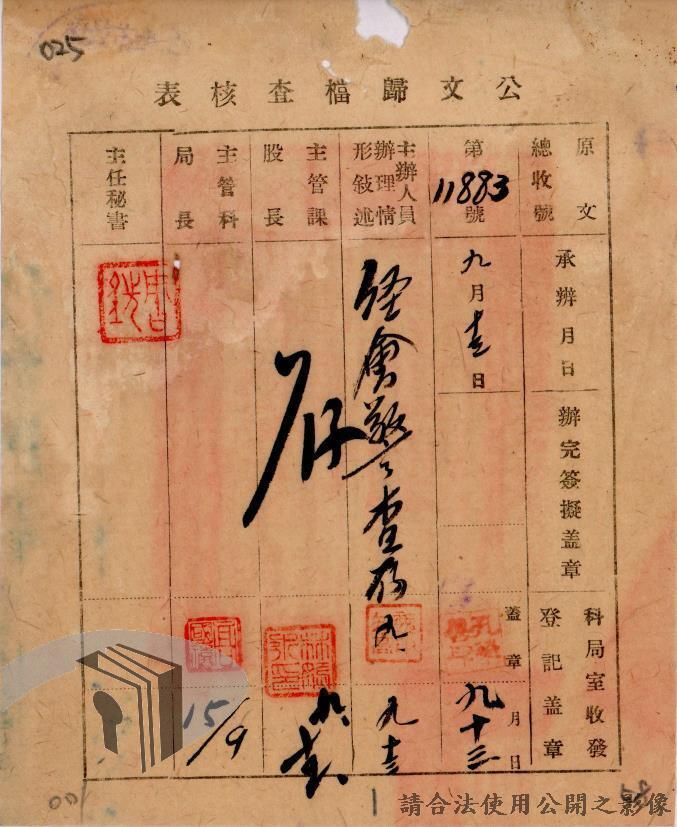 025
公文歸檔查核表
原文總收號
第11883號
主辦人員辦理情形敍述
主管課股長
主管科局長
主任秘書
承辦月日
九月十三日
經會警
查存
存
辦完簽擬蓋章
科局室收發登記蓋章
蓋章
月日
九十三
九
九十三
15/9
001
請合法使用公開之影像